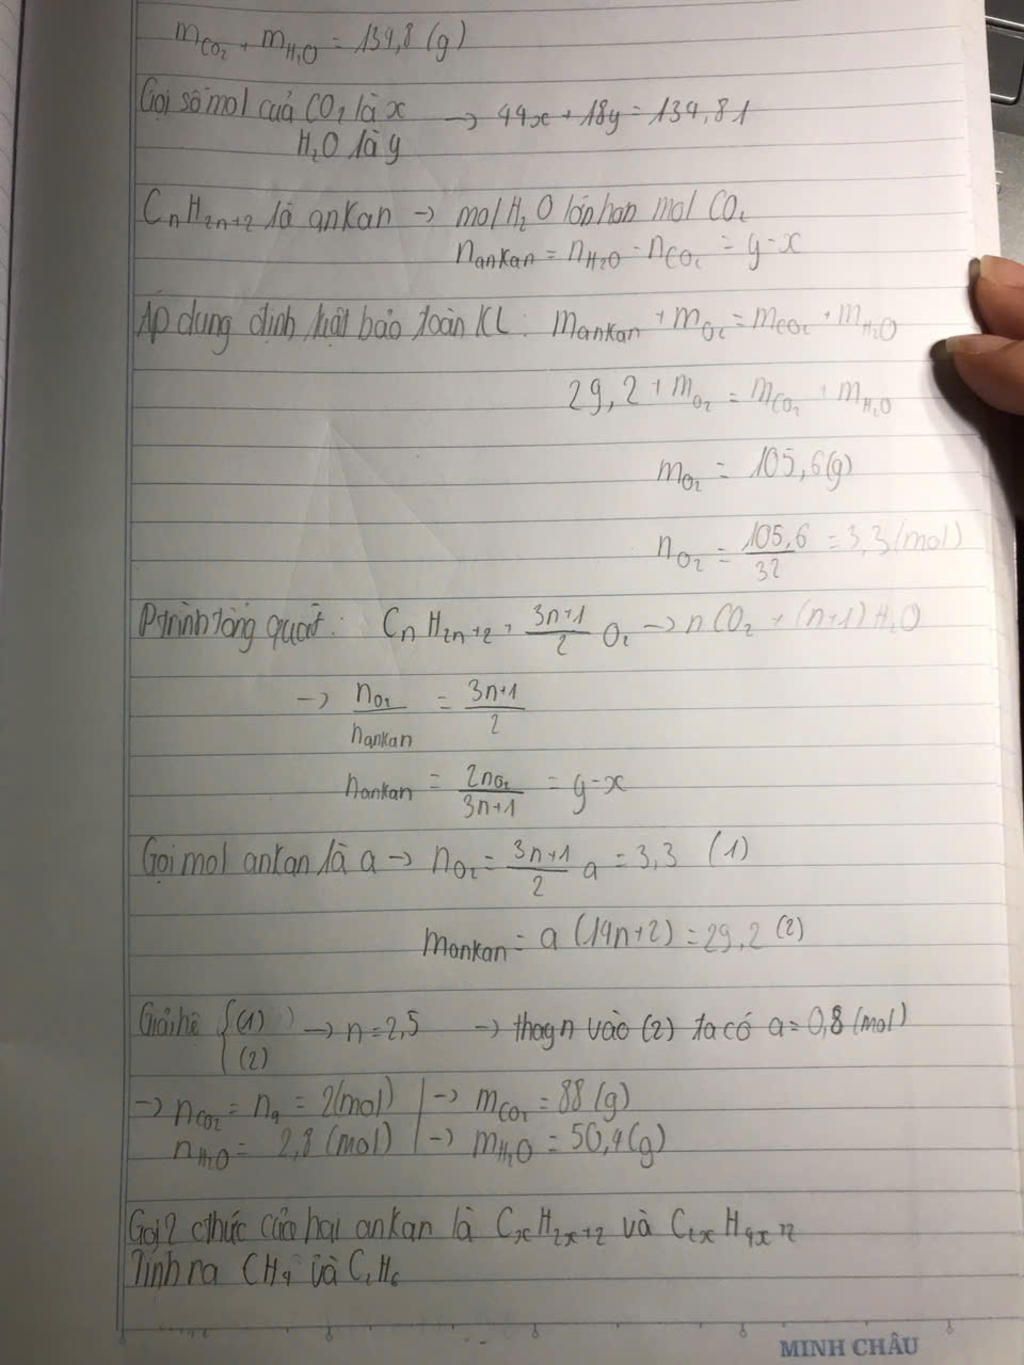 mCO₂ + mH₂O = 134,8 (g)
Gọi số mol của CO₂ là x → 44x + 18y = 134,8 1
H₂O là y
CnH2n+2 là ankan → mol H₂O lớn hơn mol CO₂
nankan = nH₂O - nCO₂ = y - x
Áp dụng định luật bảo toàn KL: mankan + mO₂ = mCO₂ + mH₂O
29,2 + mO₂ = mCO₂ + mH₂O
mO₂ = 105,6 (g)
nO₂ = 105,6/32 = 3,3 (mol)
Ptrình tổng quát: CnH2n+2 + (3n+1)/2 O₂ → nCO₂ + (n+1) H₂O
→ nO₂/nankan = (3n+1)/2
nankan = 2nO₂/(3n+1) = y - x
Gọi mol ankan là a → nO₂ = (3n+1)/2 a = 3,3 (1)
mankan = a (14n+2) = 29,2 (2)
Giải hệ { (1) → n = 2,5 → thay n vào (2) ta có a = 0,8 (mol)
(2)
→ nCO₂ = na = 2 (mol) | → mCO₂ = 88 (g)
nH₂O = 2,8 (mol) | → mH₂O = 50,4 (g)
Gọi 2 cthức của hai ankan là CxH2x+2 và C2xH4x+2
Tính ra CH₄ và C₂H₆
MINH CHÂU